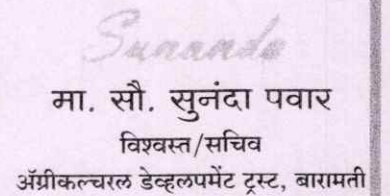 Sunanda
मा. सौ. सुनंदा पवार
विश्वस्त/सचिव
ॲग्रीकल्चरल डेव्हलपमेंट ट्रस्ट, बारामती